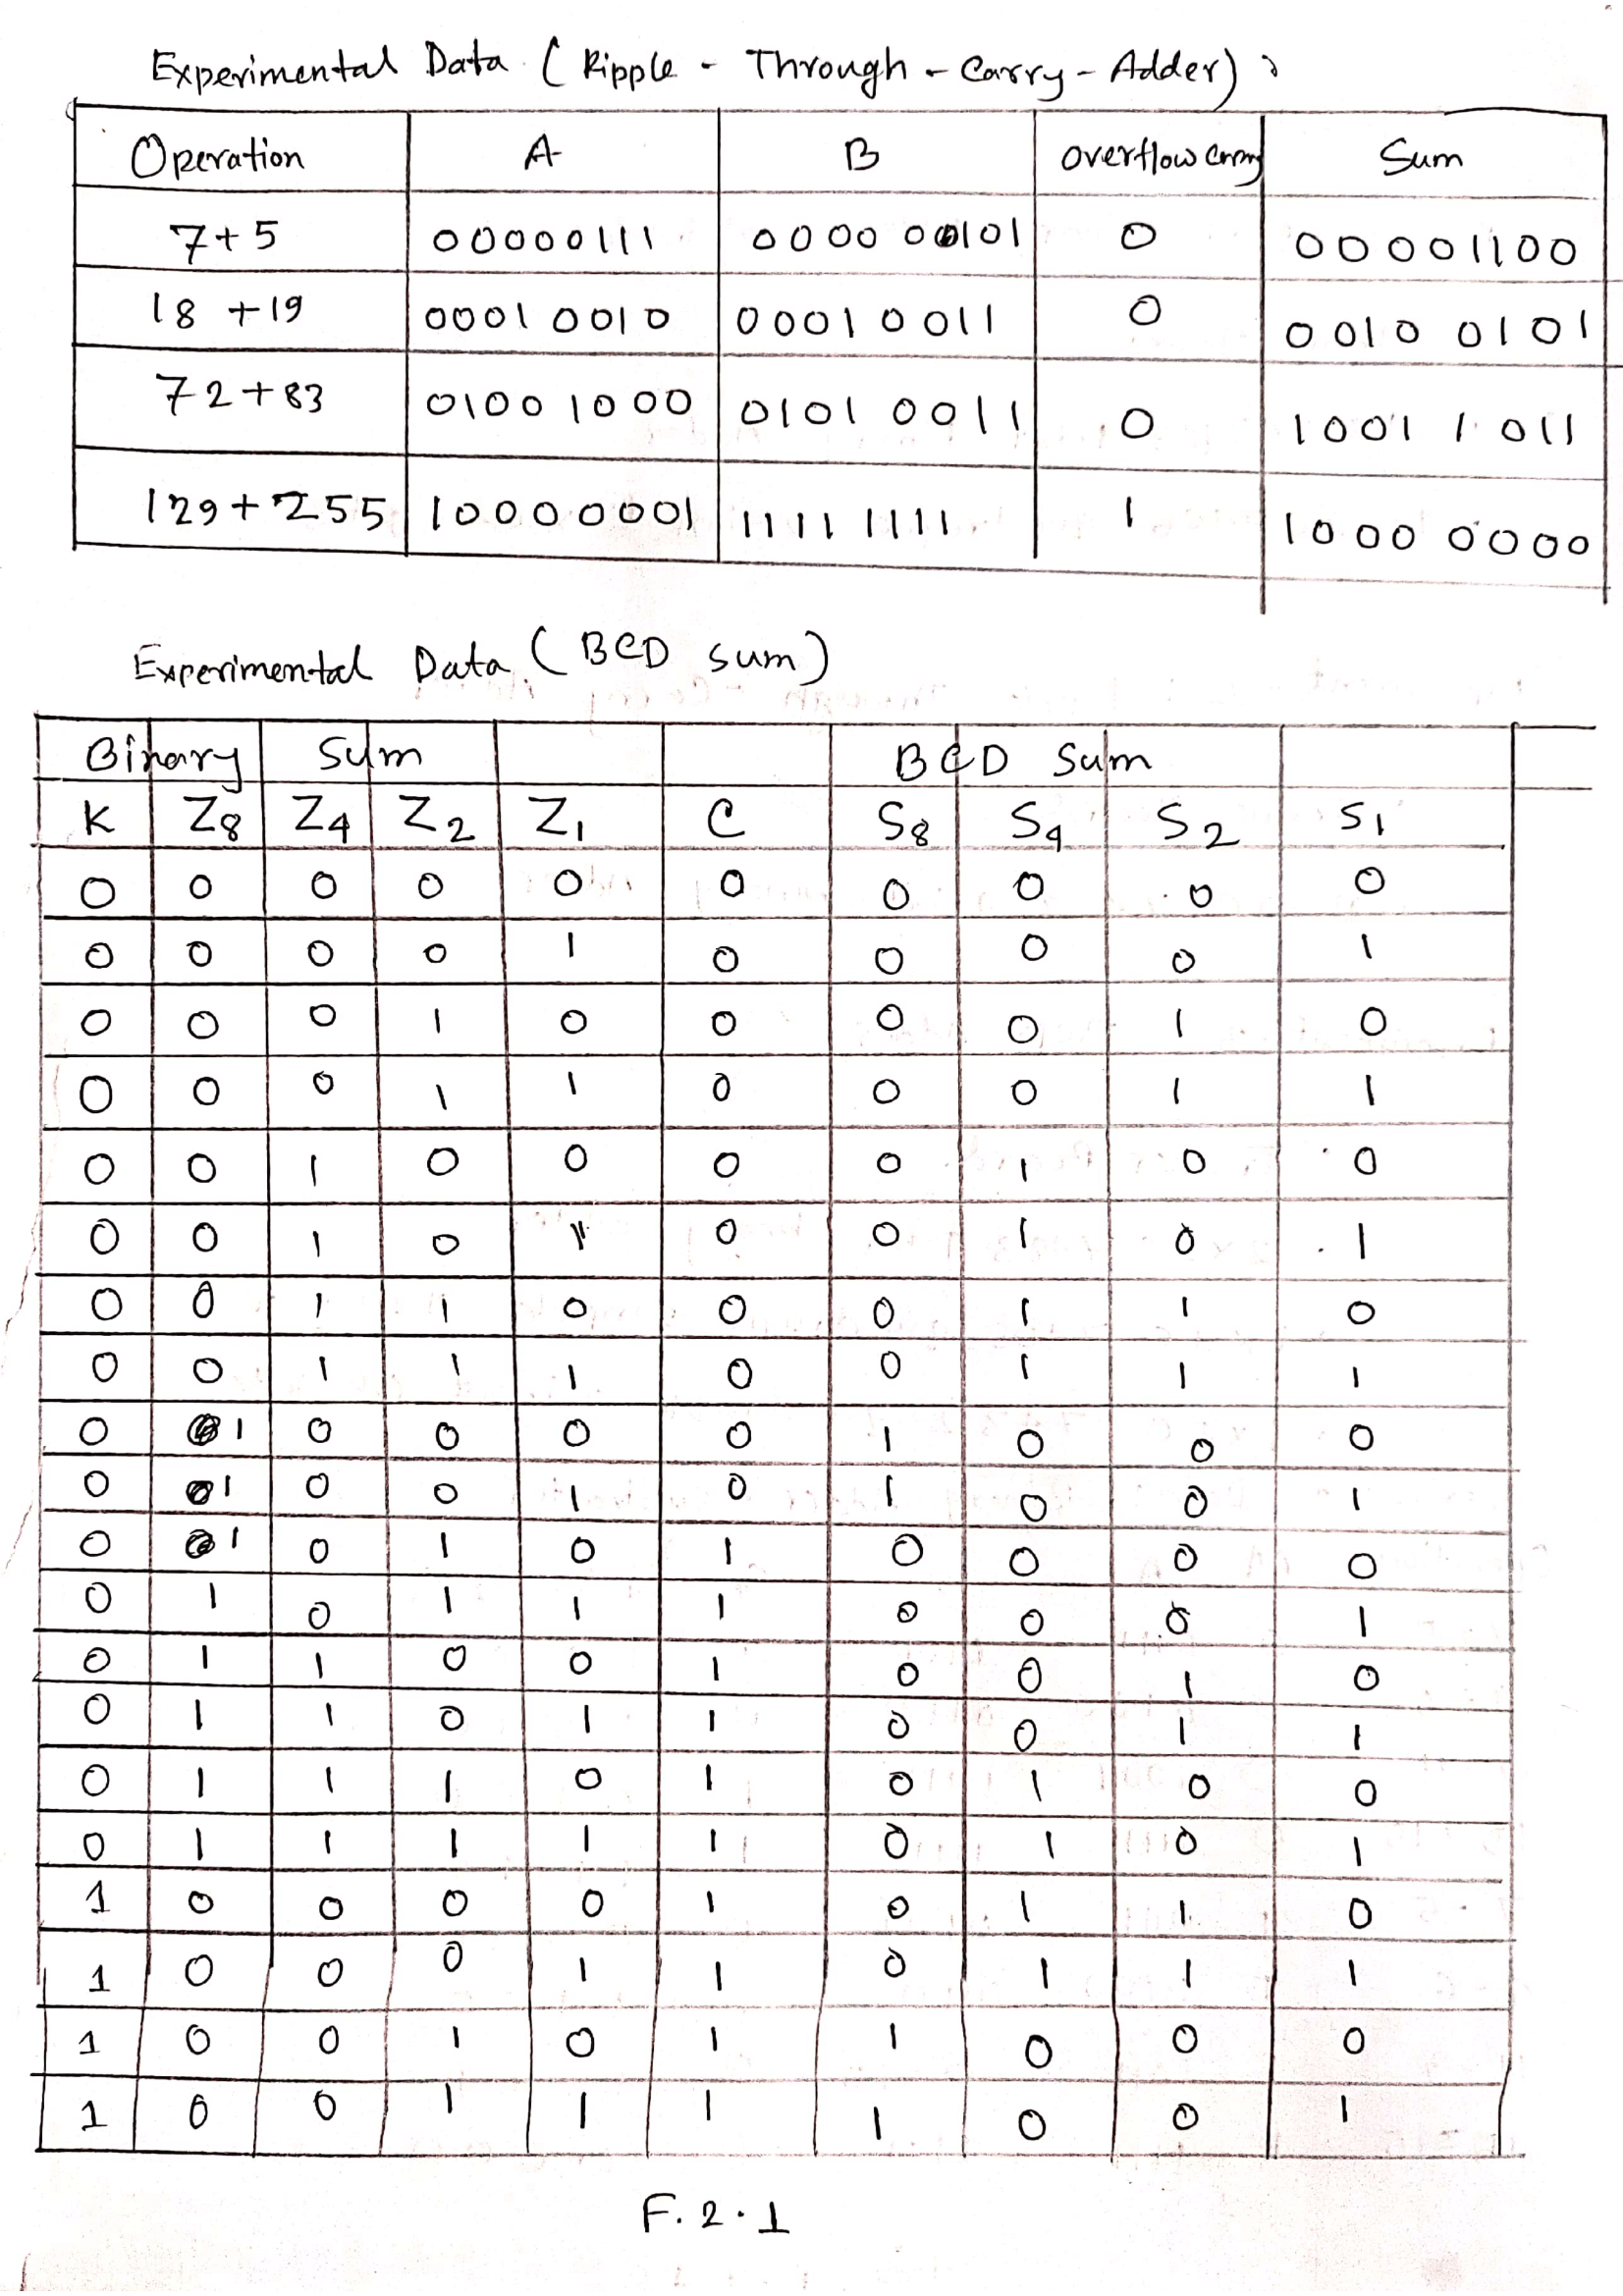 Experimental Data (Ripple - Through - Carry - Adder) :
Operation A B Overflow carry Sum
7+5 00000111 0000 00101 0 00001100
18 +19 00010010 00010011 0 0010 0101
72+83 01001000 0101 0011 0 1001 1011
129+255 10000001 1111 1111 1 1000 0000
Experimental Data (BCD sum)
Binary Sum BCD Sum
K Z8 Z4 Z2 Z1 C S8 S4 S2 S1
0 0 0 0 0 0 0 0 0 0
0 0 0 0 1 0 0 0 0 1
0 0 0 1 0 0 0 0 1 0
0 0 0 1 1 0 0 0 1 1
0 0 1 0 0 0 0 1 0 0
0 0 1 0 1 0 0 1 0 1
0 0 1 1 0 0 0 1 1 0
0 0 1 1 1 0 0 1 1 1
0 1 0 0 0 0 1 0 0 0
0 1 0 0 1 0 1 0 0 1
0 1 0 1 0 1 0 0 0 0
0 1 0 1 1 1 0 0 0 1
0 1 1 0 0 1 0 0 1 0
0 1 1 0 1 1 0 0 1 1
0 1 1 1 0 1 0 1 0 0
0 1 1 1 1 1 0 1 0 1
1 0 0 0 0 1 0 1 1 0
1 0 0 0 1 1 0 1 1 1
1 0 0 1 0 1 1 0 0 0
1 0 0 1 1 1 1 0 0 1
F. 2.1